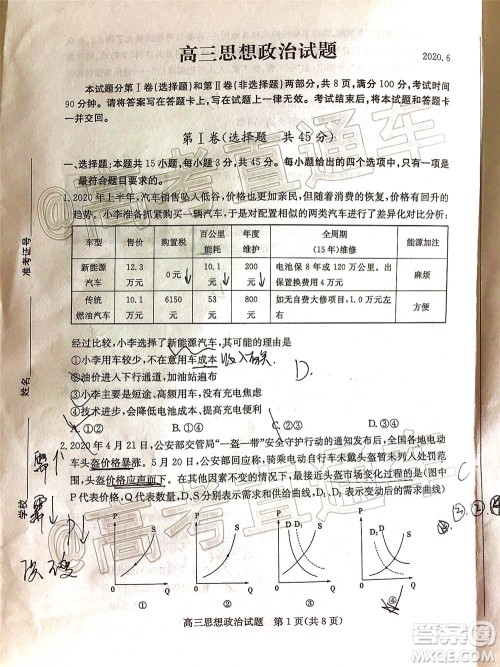 高三思想政治试题
2020.6
本试题分第Ⅰ卷(选择题)和第Ⅱ卷(非选择题)两部分，共 8 页，满分 100 分，考试时间
90 分钟。请将答案写在答题卡上，写在试题上一律无效。考试结束后，将本试题和答题卡
一并交回。
第Ⅰ卷(选择题 共 45 分)
一、选择题：本题共 15 小题，每小题 3 分，共 45 分。每小题给出的四个选项中，只有一项是
最符合题目要求的。
1. 2020 年上半年，汽车销售坠入低谷，价格也更加亲民，但随着消费的恢复，价格有回升的
趋势。小李准备抓紧购买一辆汽车，于是对价格与配置相似的两类汽车进行了差异化对比分析：
车型 售价 购置税 百公里能耗 年度维护 全周期(15年)维修 能源加注
新能源汽车 12.3万元 0元 10.1元 200元 电池保 8 年或 120 万公里，出保更换费用 4 万元 麻烦
传统燃油汽车 10.1万元 6150元 53元 800元 如无自费大修项目，1.0 万元左右 方便
经过比较，小李选择了新能源汽车，其可能的理由是
①小李用车较少，不在意用车成本
②油价进入下行通道，加油站遍布
③小李主要是短途、高频用车，不存在充电焦虑
④技术进步，会大幅降低电池成本，充电便利
A. ①② B. ①④ C. ②③ D. ③④
D.
2. 2020 年 4 月 21 日，公安部交管局“一盔一带”安全守护行动的通知发布后，全国各地电动
车头盔价格暴涨。5 月 20 日，公安部回应暂不处罚骑电动自行车未戴头盔暂不列入处罚
范围，头盔价格应声而下。在其他因素不变的情况下，最接近头盔市场变化过程的是(图中
P 代表价格，Q 代表数量，D、S分别表示需求和供给，D₁、S₁分别表示变化后的需求和供给曲线)
P S O Q
①
P S O Q
②
P D₁ D S O Q
③
P D D₁ S O Q
④
准考证号
姓名
学校
高三思想政治试题 第 1 页(共 8 页)
高考直通车
高考直通车
答案圈